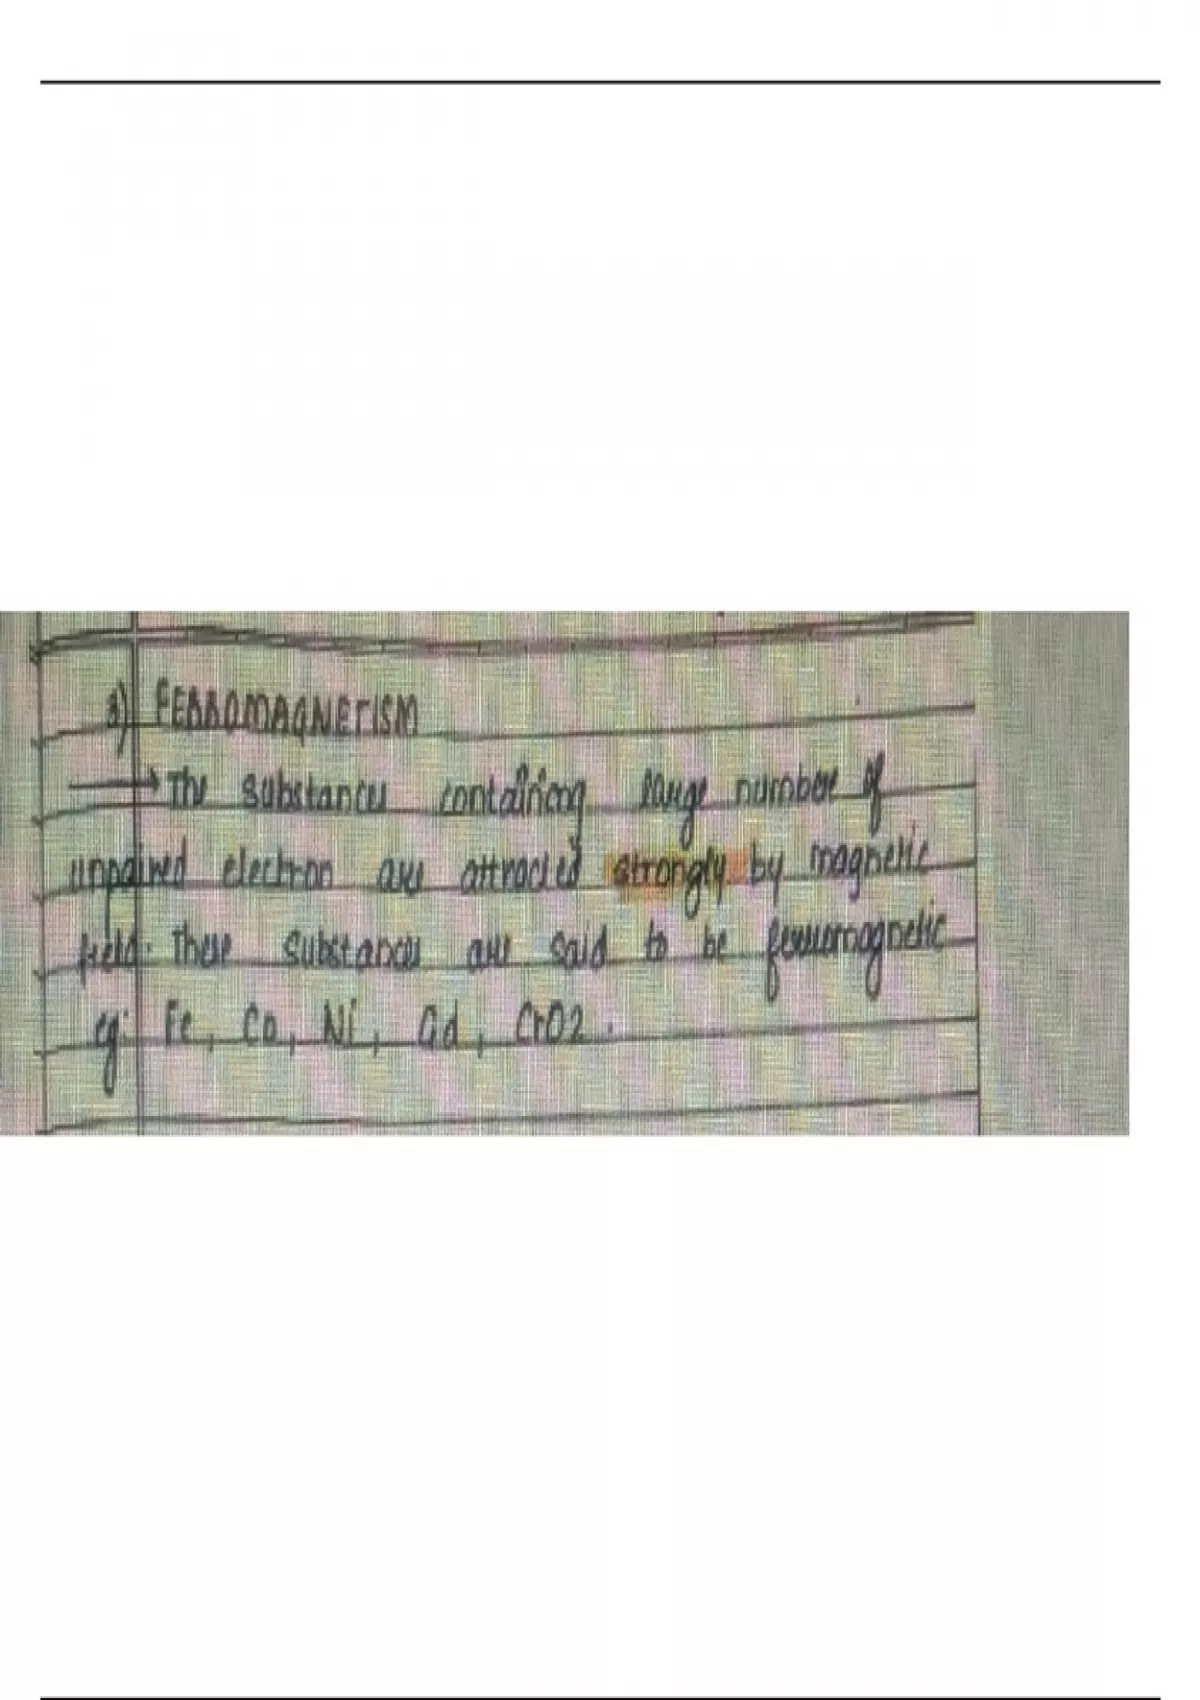 3) FERROMAGNETISM
→ The substances containing large number of
unpaired electron are attracted strongly by magnetic
field. These substances are said to be ferromagnetic
eg: Fe, Co, Ni, Gd, CrO2.